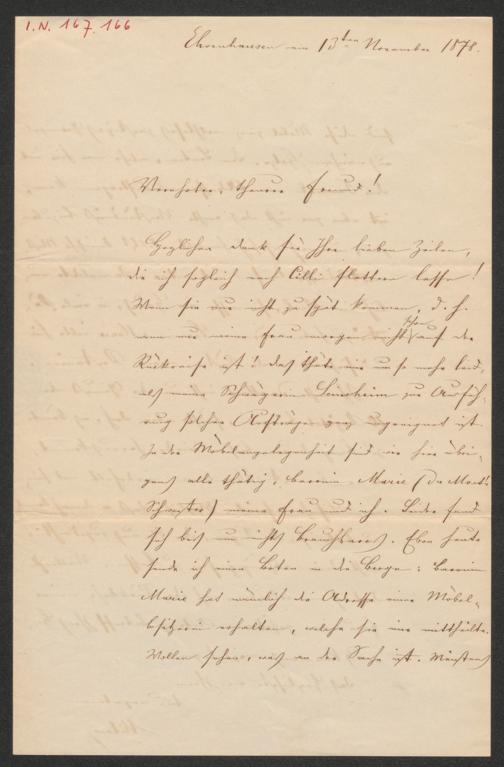 I.N. 167.166
Ehrenhausen am 13ten November 1878.
Verehrter, theurer Freund!
Herzlichen Dank für Ihre lieben Zeilen,
die ich sogleich nach Cilli flattern lasse!
Wenn sie nur nicht zu spät kommen, d. h.
wenn nur meine Frau morgen nicht schon auf der
Rückreise ist! Das thäte mir um so mehr leid,
als meine Schwägerin Leinsheim zur Ausfüh-
rung solcher Aufträge ganz geeignet ist.
In der Möbelangelegenheit sind wir hier übri-
gens alle thätig, Baronin Marie (Du Mont's
Schwester) meine Frau und ich. Leider fand
sich bis nun nichts Brauchbares. Eben heute
sende ich einen Boten in die Berge: Baronin
Marie hat nämlich die Adresse einer Möbel-
besitzerin erhalten, welche sie mir mittheilte.
Wollen sehen, was an der Sache ist. Meistens